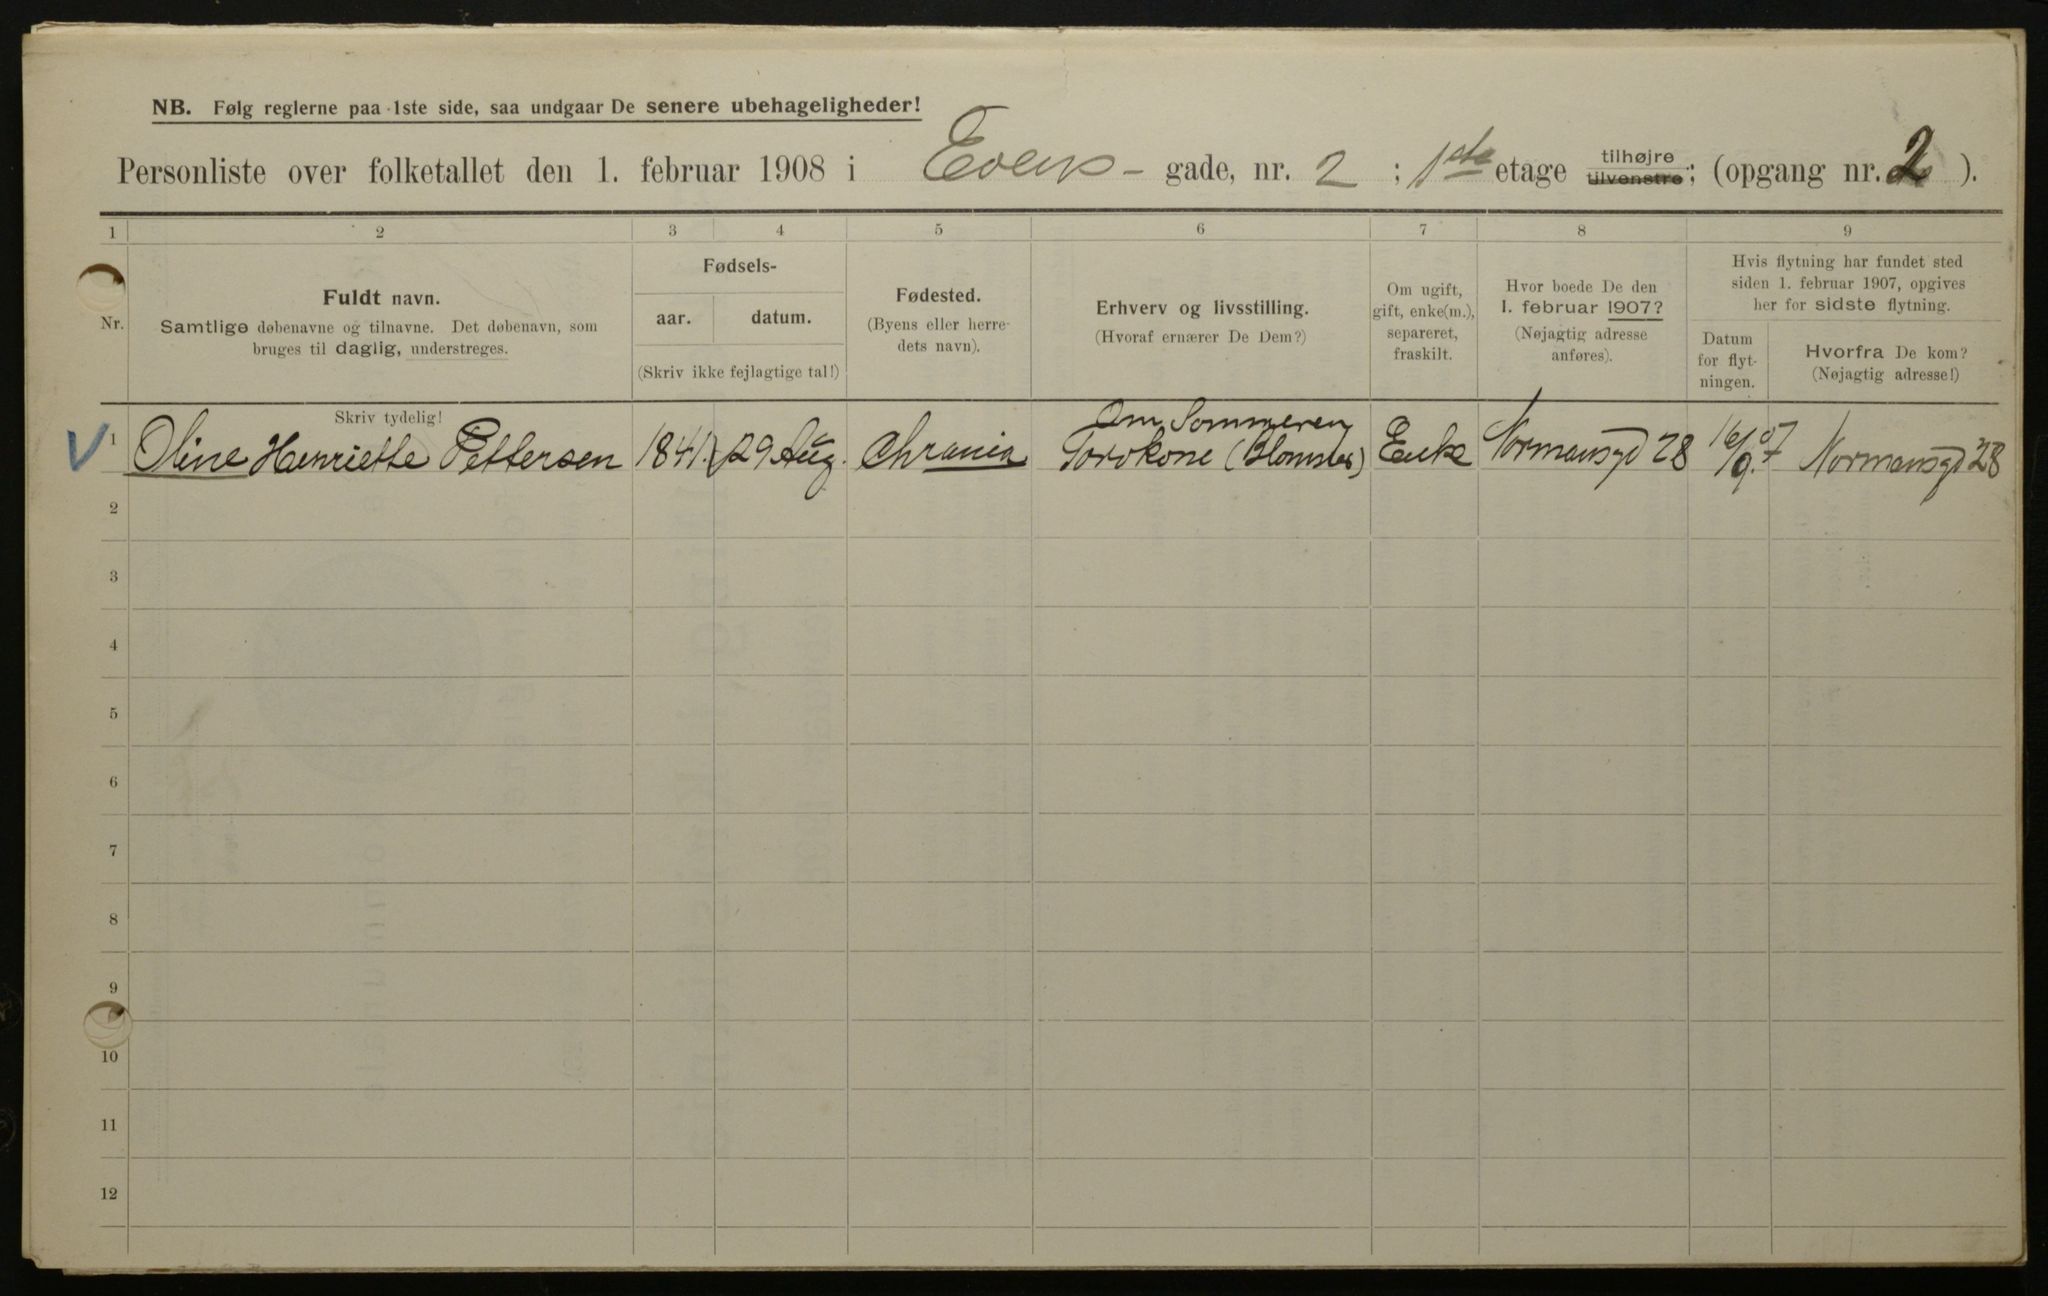 NB. Følg reglerne paa 1ste side, saa undgaar De senere ubehageligheder!
Personliste over folketallet den 1. februar 1908 i Evens - gade, nr. 2 ; 1ste etage tilhøjre tilvenstre; (opgang nr. 2 ).
1 2 3 4 5 6 7 8 9
Nr.
Fuldt navn.
Samtlige døbenavne og tilnavne. Det døbenavn, som
bruges til daglig, understreges.
Fødsels-
aar. datum.
(Skriv ikke fejlagtige tal!)
Fødested.
(Byens eller herre-
dets navn).
Erhverv og livsstilling.
(Hvoraf ernærer De Dem?)
Om ugift,
gift, enke(m.),
separeret,
fraskilt.
Hvor boede De den
1. februar 1907?
(Nøjagtig adresse
anføres).
Hvis flytning har fundet sted
siden 1. februar 1907, opgives
her for sidste flytning.
Datum
for flyt-
ningen.
Hvorfra De kom?
(Nøjagtig adresse!)
Skriv tydelig!
Om Sommeren
1 Oline Henriette Pettersen 1841. 29 Aug. Chrania Torvkone (Blomster) Enke Normansgd 28 16/9.07 Normansgd 28
2
3
4
5
6
7
8
9
10
11
12